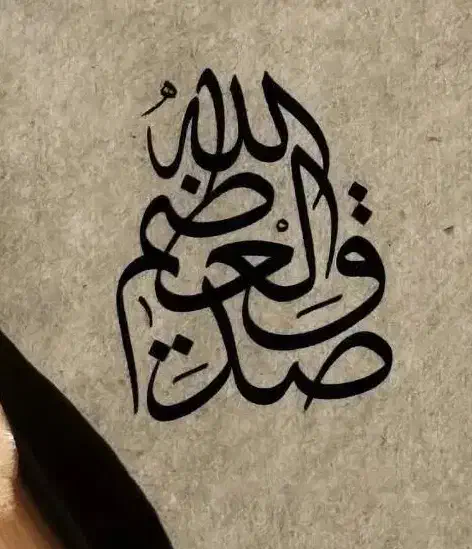 صَدَقَ اللهُ الْعَظِيم